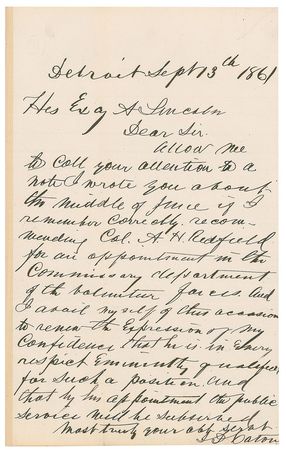 Detroit Sept 13th 1861
His Excy A Lincoln
Dear Sir.
Allow me
to call your attention to a
note I wrote you about
the middle of June if I
remember correctly. recom-
mending Col. A. H. Redfield
for an appointment in the
Commissary department
of the volunteer forces. And
I avail myself of this occasion
to renew the Expression of my
Confidence that he is in Every
respect Eminently qualified
for such a position. and
that by his appointment the public
service will be subserved
Most truly your obt Servt
J D Caton